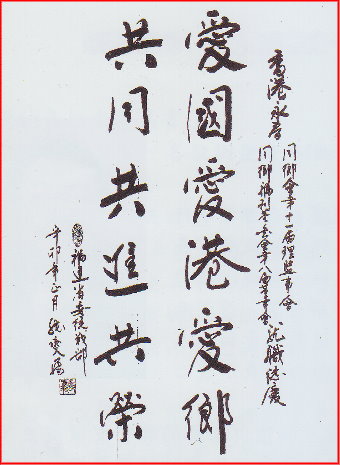 香港永春
同鄉會第十一屆理監事會
同鄉福利基金會第八屆董事會
就職誌慶
愛國愛港愛鄉
共同共進共榮
福建省委統戰部
辛卯年正月張燮飛